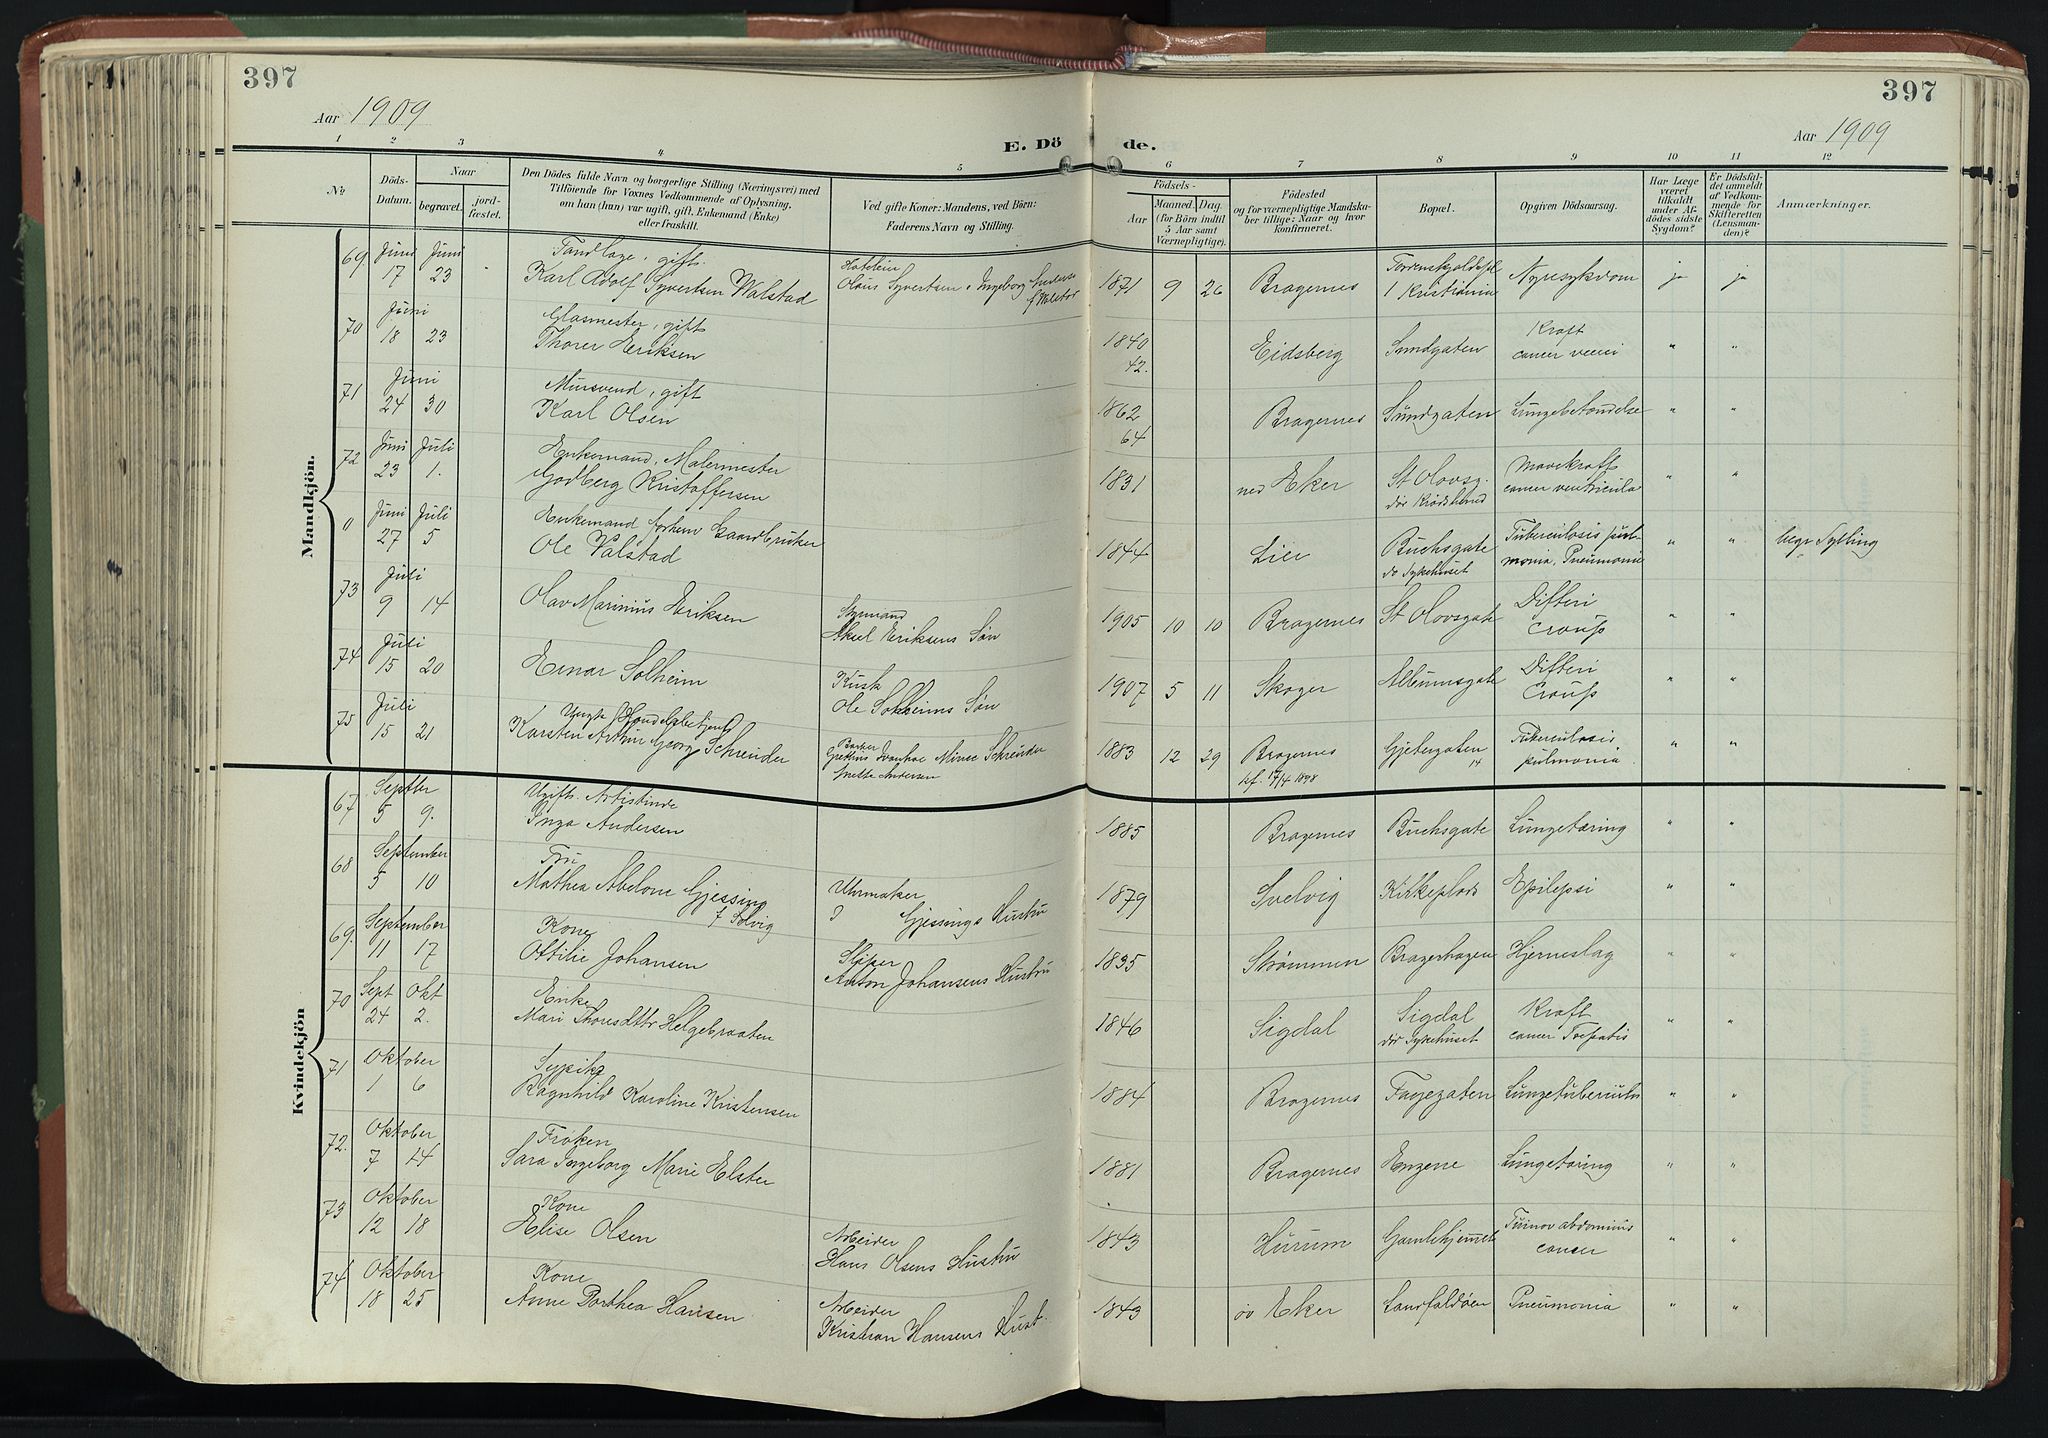 397
397
Aar 1909
Aar 1909
E. Dö de.
1 2 3 4 5 6 7 8 9 10 11 12
No
Döds-Datum.
Naar
begravet.
jord-fæstet.
Den Dödes fulde Navn og borgerlige Stilling (Næringsvei) med
Tilföiende for Voxnes Vedkommende af Oplysning,
om han (hun) var ugift, gift, Enkemand (Enke)
eller fraskilt.
Ved gifte Koner: Mandens, ved Börn:
Faderens Navn og Stilling.
Födsels-
Aar
Maaned. Dag.
(for Börn indtil
5 Aar samt
Værnepligtige).
Födested
og for værnepligtige Mandska-
ber tillige: Naar og hvor
konfirmeret.
Bopæl.
Opgiven Dödsaarsag.
Har Læge
været
tilkaldt
under Af-
dödes sidste
Sygdom?
Er Dödsfal-
det anmeldt
af Vedkom-
mende for
Skifteretten
(Lensman-
den)?
Anmærkninger.
Mandkjön.
69 Juni 17 Juni 23 Tandlæge, gift.
Karl Adolf Syvertsen Walstad
Olaus Syvertsen Ingeborg
1871 9 26 Bragernes
i Kristiania Nyresykdom ja ja
70 Juni 18 23 Glasmester, gift
Thorer Eriksen
1840 Eidsberg Sundgaten Kraft
42. cancer
71 Juni 24 30 Mursvend, gift
Karl Olsen
1862 Bragernes Sundgaten Lungebetændelse " "
64
72 Juni 23 Juli 1. Enkemand, Malermester
Godberg Kristoffersen
1831 ned Eker St Olovsg. Mavekraft " "
cancer ventricula
0 Juni 27 Juli 5 Enkemand forhenv Gaardbruker
Ole Valstad
1844 Lier Buchsgate Tuberculosis pul- " " begr Sylling
do Sykehuset monia, Pneumonie
73 Juli 9 14 Olav Marinius Eriksen
Styrmand
Aksel Eriksens Søn
1905 10 10 Bragernes St Olovsgate Difteri " "
Croup
74 Juli 15 20 Einar Solheim
Kusk
Ole Solheims Søn
1907 5 11 Skoger Albumsgate Difteri " "
Croup
75 Juli 15 21 Ungk. Handelsbetjent
Karsten Arthur Georg Schreuder
1883 12 29 Bragernes Gjetergaten 14 Tuberculosis " "
kf. 17/4 1898 pulmonia.
Kvindekjön
67 Septber 5 9. Ugift. Artistinde
Inga Andersen
1885 Bragernes Buchsgate Lungetæring " "
68 September 5 10 Fru
Mathea Abelone Gjessing
f Solvig
Uhrmaker
Gjessings Hustru
1879 Svelvig Kirkeplads Epilepsi " "
69. September 11 17 Kone
Ottilie Johansen
Sliper
Anton Johansens Hustru
1835 Strømmen Bragerhagen Hjerneslag " "
70 Sept 24 Okt 2. Enke
Mari Thorsdttr Helgebraaten
1846 Sigdal Sigdal Kraft " "
dør Sykehuset cancer
71 Oktober 1 6 Sypike
Ragnhild Karoline Kristensen
1884 Bragernes Fagegaten " "
72. Oktober 7 14 Frøken
Sara Ingeborg Marie Elster
1881 Bragernes Engene Lungetæring " "
73 Oktober 12 18 Kone
Elise Olsen
Arbeider
Hans Olsens Hustru
1843 Hurum Gamlehjemmet " "
cancer
74 Oktober 18 25 Kone
Anne Dorthea Hansen
Arbeider
Kristian Hansens Hust.
1843 øv Eker Landfaldøen Pneumonia " "